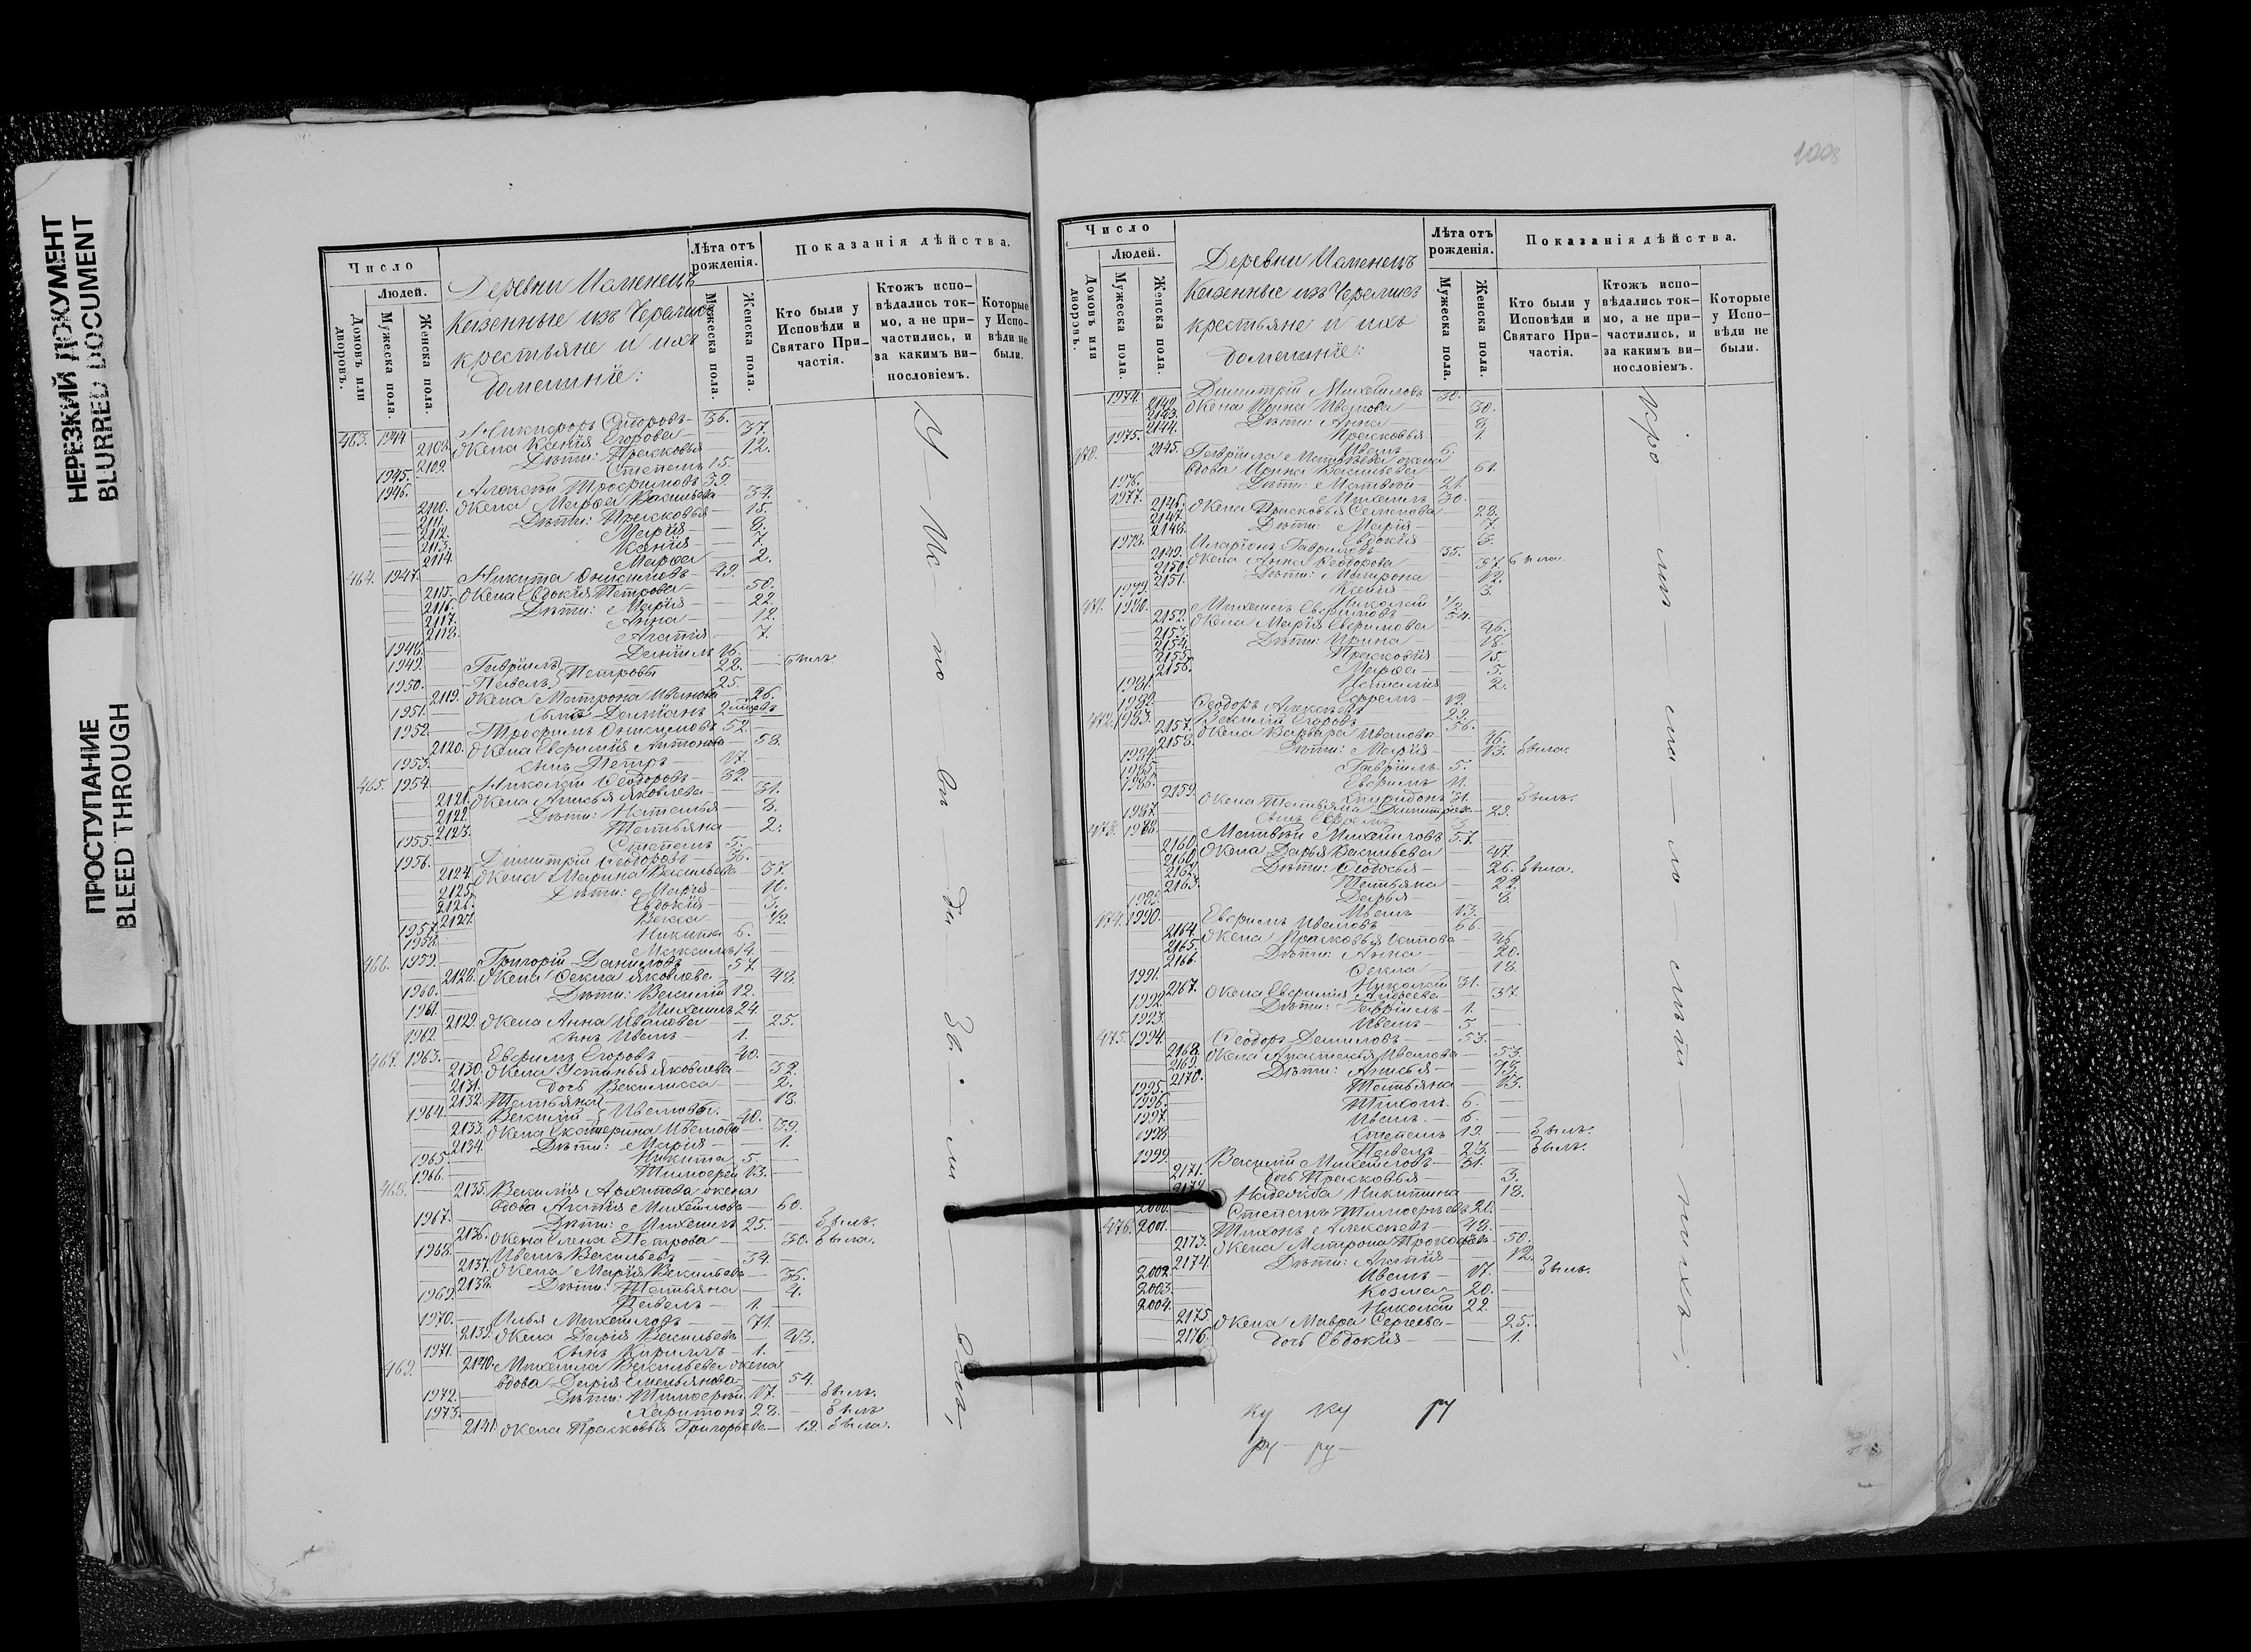 НЕРЕЗКИЙ ДОКУМЕНТ
BLURRED DOCUMENT
ПРОСТУПАНИЕ
BLEED THROUGH
Число
Людей.
Домовъ или дворовъ.
Мужеска пола.
Женска пола.
Деревни
Казенные изъ Черемисъ
крестьяне и ихъ
домашніе:
Лѣта отъ рожденія.
Мужеска пола.
Женска пола.
Показанія дѣйства.
Кто были у Исповѣди и Святаго Причастія.
Ктожъ исповѣдались токмо, а не причастились, и за какимъ винословіемъ.
Которые у Исповѣди не были.
463. 1944 Никифоръ Сидоровъ 36.
2108. Жена Ксенія Егорова 37.
2109. Дѣти: Прасковья 12.
1945. Степанъ 15.
1946. Алексѣй Трофимовъ 39.
2110. Жена Марфа Васильева 34.
2111. Дѣти: Прасковья 15.
2112. Марія
2113. Ксенія 7.
2114. Марфа 2.
464. 1947. Никита Онисимовъ 49.
2115. Жена Евдокія Петрова 50.
2116. Дѣти: Марія 22.
2117. Анна 12.
2118. Агапія 7.
1948. Даніилъ 16.
1949. Гавріилъ 22. былъ.
1950. Павелъ Петровы 25.
2119. Жена Матрона Иванова 26.
1951. сынъ Даміанъ
1952. Трофимъ Онисимовъ 52.
2120. Жена Евфимія Антонова 58.
1953. сынъ Петръ 17.
465. 1954. Николай Ѳеодоровъ 32.
2121. Жена Анисья Яковлева 31.
2122. Дѣти: Наталья 8.
2123. Татьяна 2.
1955. Степанъ 5.
1956. Димитрій Ѳеодоровъ 36.
2124. Жена Марина Васильева 37.
2125. Дѣти: Марія
2126. Евдокія 3.
2127.
1957. Никита 6.
1958. Максимъ 14.
466. 1959. Григорій Даниловъ 57.
2128. Жена Ѳекла Яковлева 48.
1960. Дѣти: Василій 12.
1961. Михаилъ 24.
2129. Жена Анна Иванова 25.
1962. сынъ Иванъ 1.
467. 1963. Евфимъ Егоровъ 40.
2130. Жена Устинья Яковлева 32.
2131. дочь Василисса 2.
2132. Татьяна 18.
1964. Василій Ивановы. 40.
2133. Жена Екатерина Иванова 39.
2134. Дѣти: Марія 1.
1965. Никита 5.
1966. Тимофей 13.
468. 2135. Василія Архипова жена
вдова Агапія Михайлова 60.
1967. Дѣти: Михаилъ 25. былъ.
2136. Жена Елена Петрова 30. была.
1968. Иванъ Васильевъ 34.
2137. Жена Марія Васильева 36.
2138. Дѣти: Татьяна 4.
1969. Павелъ 1.
1970. Илья Михайловъ 71.
2139. Жена Дарія Васильева 43.
1971. сынъ Кириллъ 1.
469. 2140. Михаила Васильева жена
вдова Дарія Емельянова 54.
1972. Дѣти: Тимофей 17. былъ.
1973. Харитонъ 28. былъ
2141. Жена Прасковья Григорьева 19. была.
Число
Людей.
Домовъ или дворовъ.
Мужеска пола.
Женска пола.
Деревни
Казенные изъ Черемисъ
крестьяне и ихъ
домашніе:
Лѣта отъ рожденія.
Мужеска пола.
Женска пола.
Показанія дѣйства.
Кто были у Исповѣди и Святаго Причастія.
Ктожъ исповѣдались токмо, а не причастились, и за какимъ винословіемъ.
Которые у Исповѣди не были.
1974. Димитрій Михайловъ 30.
2142. Жена Ирина Иванова 30.
2143. Дѣти: Анна 8.
2144. Прасковья 1.
1975. Иванъ 6.
470. 2145. Гавріила Матвѣева жена
вдова Ирина Васильева 61.
1976. Дѣти: Матвѣй 21.
1977. Михаилъ 30.
2146. Жена Прасковья Семенова 28.
2147. Дѣти: Марія 7.
2148. Евдокія
1978. Иларіонъ Гавриловъ 35.
2149. Жена Анна Ѳеодорова 37. была.
2150. Дѣти: Матрона 12.
2151. Ксенія 3.
1979. Николай 1/2
471. 1980. Михаилъ Евфимовъ 54.
2152. Жена Марія Евфимова 46.
2153. Дѣти: Ирина 18.
2154. Прасковія 15.
2155. Марфа 5.
2156. Наталія 2.
1981. Ефремъ 12.
1982. Ѳеодоръ Алексѣевъ 29.
472. 1983. Василій Егоровъ 56.
2157. Жена Варвара Иванова 46.
2158. Дѣти: Марія 13. была.
1984. Гавріилъ 5.
1985. Евфимъ 11.
1986. Спиридонъ 31. былъ.
2159. Жена Татьяна Димитріева 29.
1987. сынъ Ефремъ 3.
473. 1988. Матвѣй Михайловъ 57.
2160. Жена Дарья Васильева 47.
2161. Дѣти: Ѳеодосья 26. была.
2162. Татьяна 22.
2163. Дарья 8.
1989. Иванъ 13.
474. 1990. Евфимъ Ивановъ 66.
2164. Жена Прасковья 46.
2165. Дѣти: Анна 20.
2166. Ѳекла 18.
1991. Николай 31.
2167. Жена Евфимія 37.
1992. Дѣти: Гавріилъ 1.
1993. Иванъ 5.
475. 1994. Ѳеодоръ Даниловъ 53.
2168. Жена Анастасья Иванова 53.
2169. Дѣти: Анисья
2170. Татьяна 13.
1995. Тихонъ 6.
1996. Иванъ 6.
1997. Степанъ 19. былъ.
1998. Павелъ 23. былъ.
1999. Василій Михайловъ 31.
2171. дочь Прасковья 3.
Надежда Никитина 18.
2000. Степанъ Тимофѣевъ 20.
476. 2001. Тихонъ Алексѣевъ 48.
2173. Жена Матрона Прокофьева 50.
2174. Дѣти: Агапія 12.
2002. Иванъ 17. былъ.
2003. Козма 20.
2004. Николай 22.
2175. Жена Мавра Сергеева 25.
2176. дочь Евдокія 1.
ку ку ру
ру — ру —